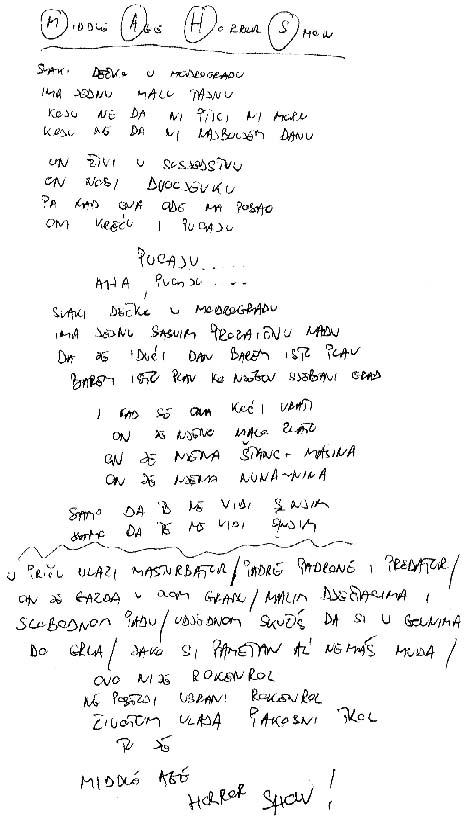 MIDDLE AGE HORROR SHOW
SVAKI DEČKO U MODROGRADU
IMA JEDNU MALU TAJNU
KOJU NE DA NI PTICI NI MORU
KOJU NE DA NI NAJBOLJEM DANU
ON ŽIVI U SUSJEDSTVU
ON NOSI DVOCJEVKU
PA KAD ONA ODE NA POSAO
ONI KREĆU I PUCAJU
PUCAJU.....
AHA PUCAJU....
SVAKI DEČKO U MODROGRADU
IMA JEDNU SASVIM PROZAIČNU NADU
DA JE IDUĆI DAN BAREM ISTO PLAV
BAREM ISTO PLAV KO NJEGOV SJEBANI GRAD
I KAD SE ONA KUĆI VRATI
ON JE NJENO MALO ZLATO
ON JE NJENA ŠTANC-MAŠINA
ON JE NJENA NUNA-NINA
SAMO DA TE NE VIDI S NJIM
SAMO DA TE NE VIDI S NJIM
U PRIČU ULAZI MASTURBATOR/PADRE PADRONE I PREDATOR/
ON JE GAZDA U OVOM GRADU/MALIM DJEČACIMA I
SLOBODNOM PADU/ODJEDNOM SKUŽIŠ DA SI U GOVNIMA
DO GRLA/JAKO SI PAMETAN AL' NEMAŠ MUDA/
OVO NIJE ROKENROL
NE POSTOJI UBRANI ROKENROL
ŽIVOTOM VLADA PAKOSNI TROL
TO JE
MIDDLE AGE
HORROR SHOW!